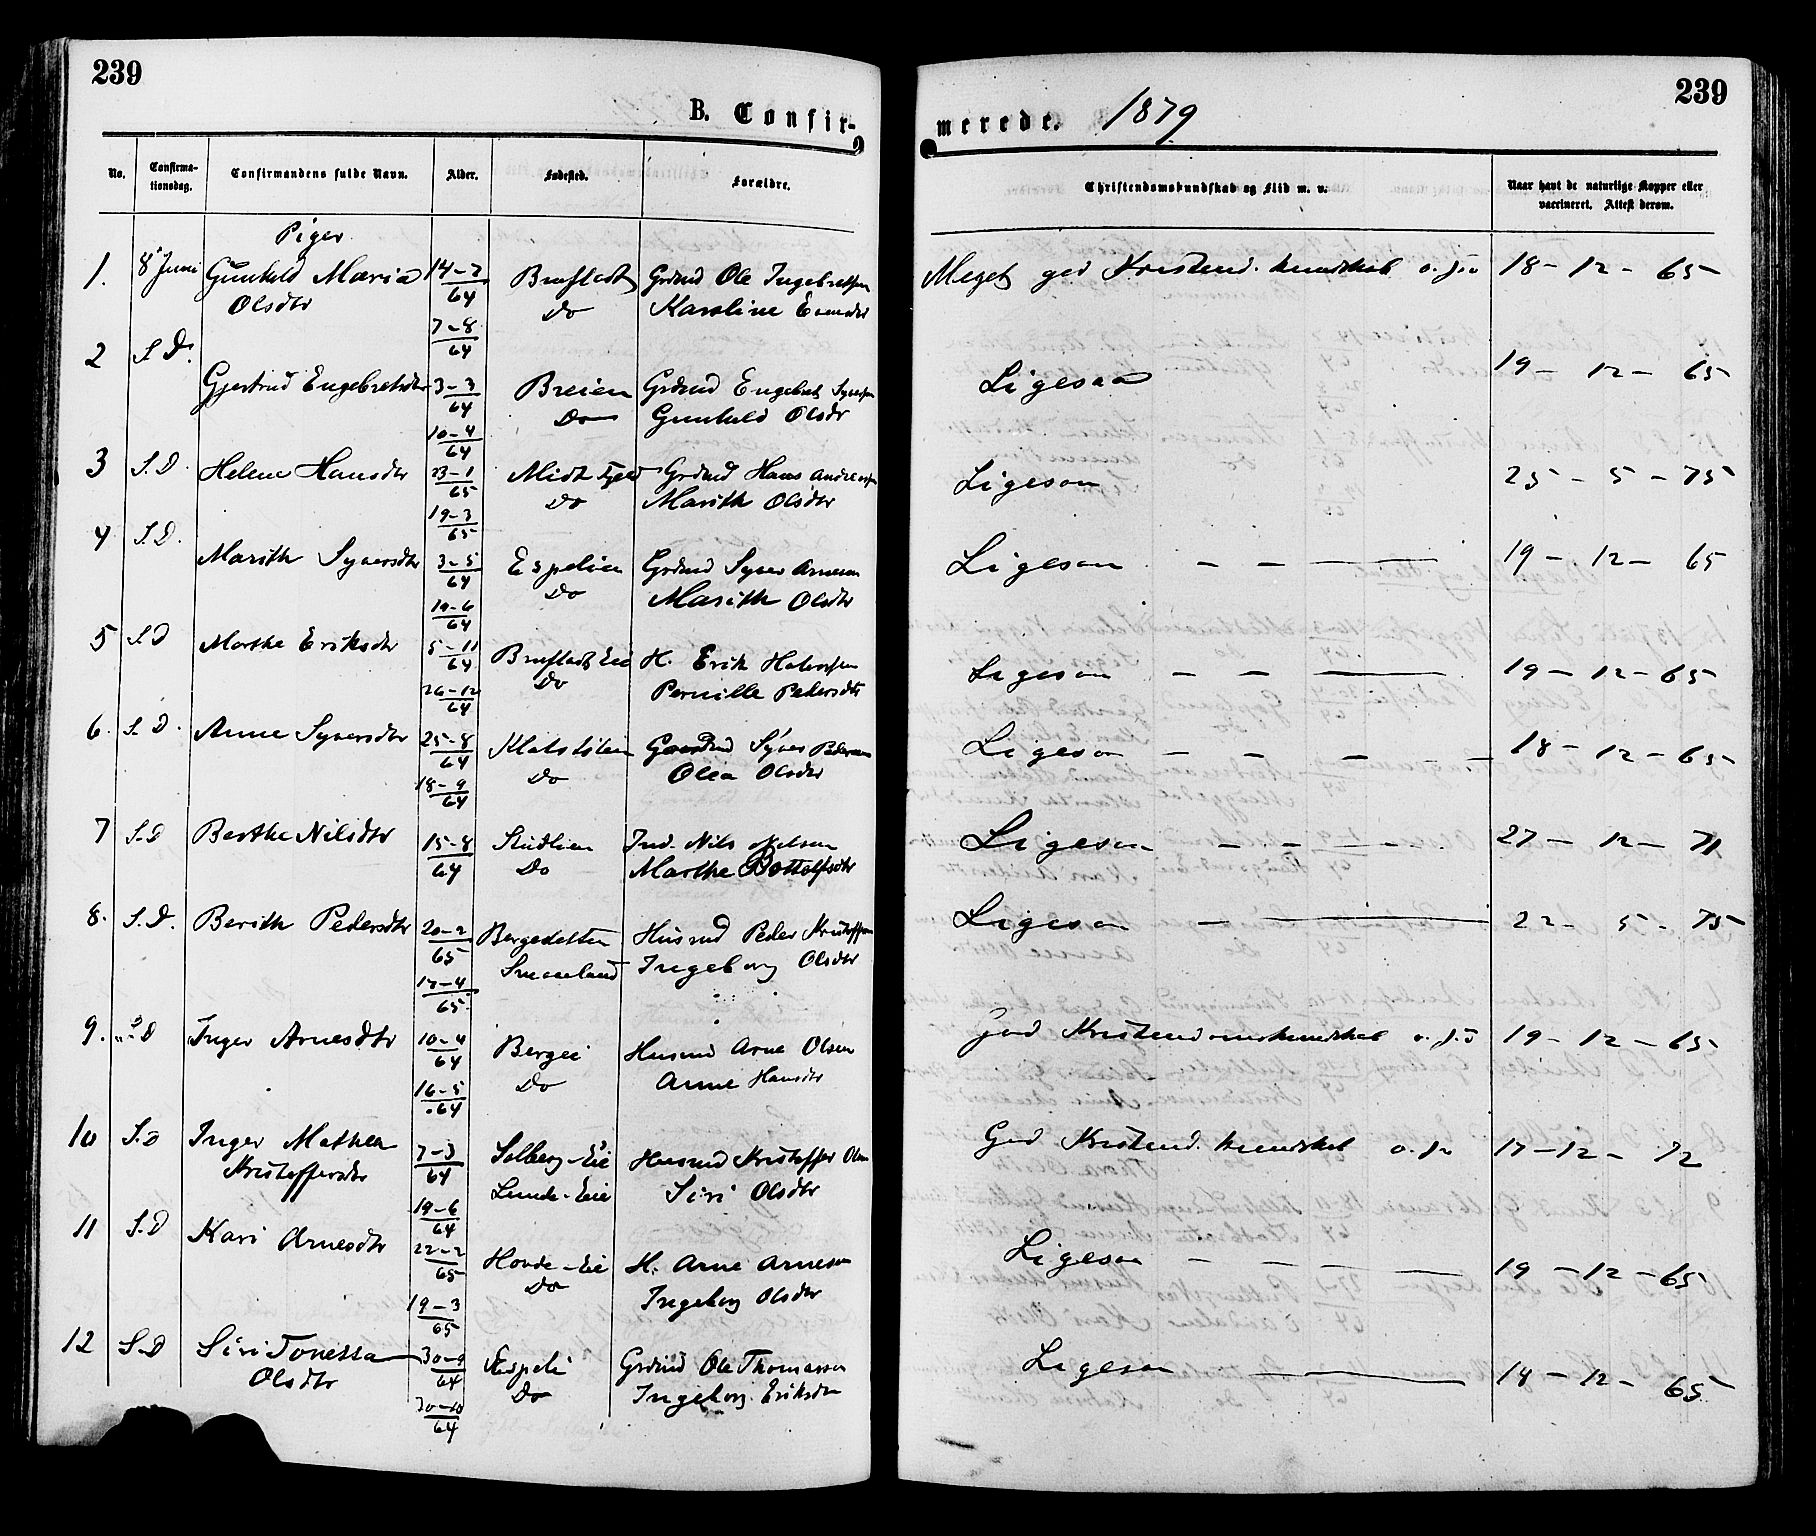 239
B. Confir-
No.
Confirma-
tionsdag.
Confirmandens fulde Navn.
Alder.
Fødested.
Forældre.
Piger
1. 8 Juni Gunhild Maria 14-7 Brufladt Grdmd Ole Ingebretsen
Olsdtr 64 Do Karoline Evensdtr
7-8
64
2 S. D.
Gjertrud Engebretsdtr 3-3 Breien Grdmd Engebret Syversen
64 Do Gunhild Olsdtr
10-4
64
3 S. D. Helene Hansdtr 23-1 Midtfjeld Grdmd Hans Andersen
65 Do Marith Olsdtr
19-3
65
4 S. D.
Marith Syversdtr 3-5 Espelien Grdmd Syver Arnesen
64 Do Marith Olsdtr
19-6
64
5 S. D Marthe Eriksdtr 5-11 Brufladt Eie H. Erik Halvorsen
64 Do Pernille Pedersdtr
26-12
64
6. S. D. Anne Syversdtr 25-8 Klatstølen Gaardmd Syver Pedersen
64 Do Olea Olsdtr
18-9
64
7 S. D Berthe Nilsdtr 15-8 Studlien Ind. Nils Nilsen
64 Do Marthe Bottolfsdtr
8. S. D. Berith Pedersdtr 20-2 Bergesletten Husmd Peder Kristoffersen
65 Smaaland Ingeborg Olsdtr
17-4
65.
9. D Inger Arnesdtr 10-4 Bergei Husmd Arne Olsen
64 Do Anne Hansdtr
16-5
64
10 S. D Inger Mathea 7-3 Solberg-Eie Husmd Kristoffer Olsen
Kristoffersdtr 64 Lunde-Eie Siri Olsdtr
19-6
64
11 S. D Kari Arnesdtr 22-2 Hovde-Eie H. Arne Arnesen
65 Do Ingeborg Olsdtr
19-3
65
12 S. D Siri Tonetta 30-9 Espeli Grdmd Ole Thomassen
Olsdtr 64 Do Ingeborg Eriksdtr
30-10
64
239
merede. 1879
Christendomskundskab og Flid m. v.
Naar havt de naturlige Kopper eller
vaccineret. Attest derom.
Meget god Kristend. kundskab o. fl. 18-12-65
Ligesaa 19-12-65
Ligesaa 25-5-75
Ligesaa - - — 19-12-65
Ligesaa - - — 19-12-65
Ligesaa - - - - 18-12-65
Ligesaa - - - - 27-12-71
Ligesaa - — 22-5-75
God Kristendomskundskab o. fl. 19-12-65
God Kristend. kundskab o. fl. 17-12-72
Ligesaa - - - — 19-12-65
Ligesaa - — 14-12-65